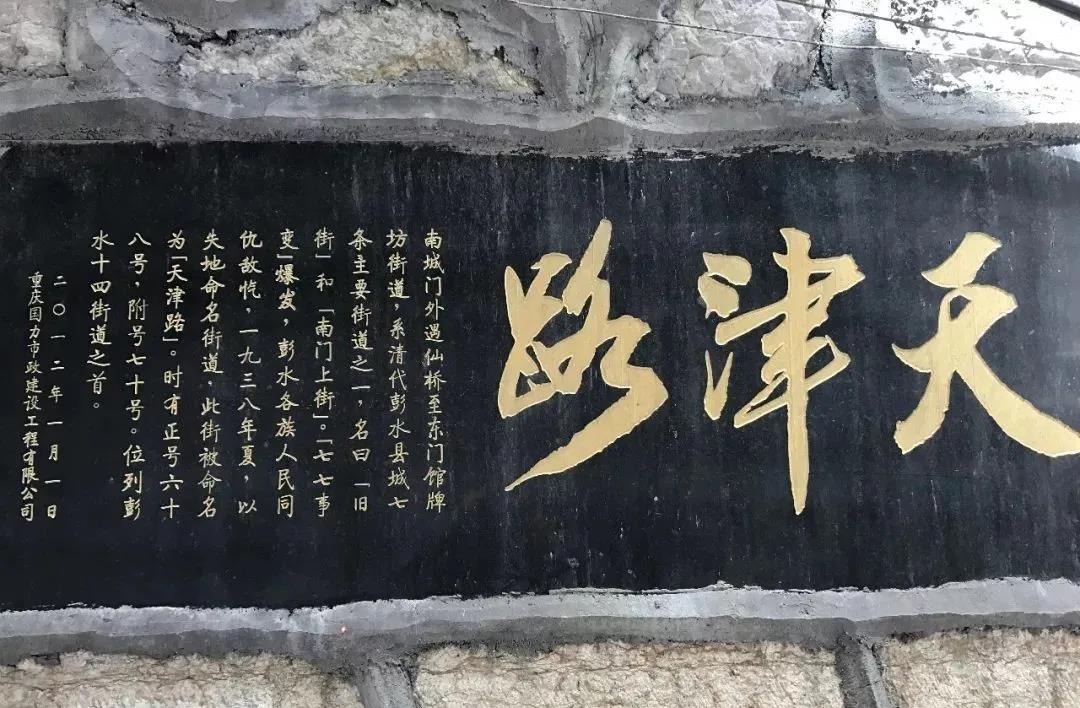 天津路
南城门外遇仙桥至东门馆牌
坊街道，系清代彭水县城七
条主要街道之一，名曰「旧
街」和「南门上街」。「七七事
变」爆发，彭水各族人民同
仇敌忾，一九三八年夏，以
失地命名街道，此街被命名
为「天津路」。时有正号六十
八号，附号七十号。位列彭
水十四街道之首。
二〇一二年一月一日
重庆固力市政建设工程有限公司